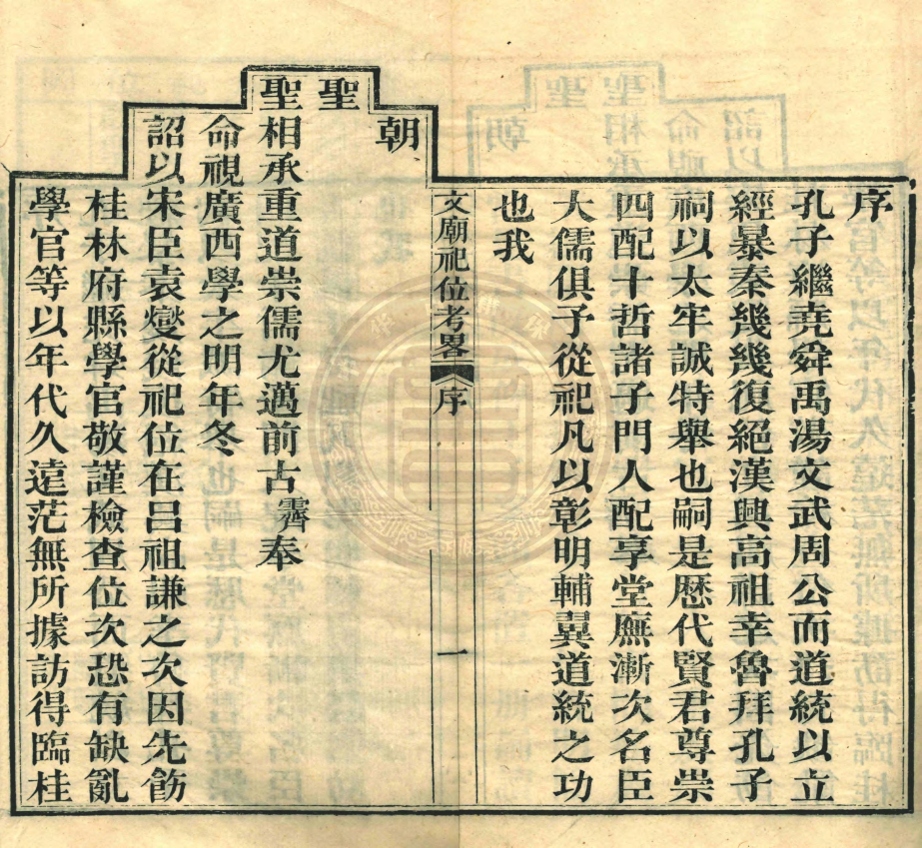 序
孔子繼堯舜禹湯文武周公而道統以立
經暴秦幾幾復絕漢興高祖幸魯拜孔子
祠以太牢誠特舉也嗣是歷代賢君尊崇
四配十哲諸子門人配享堂廡漸次名臣
大儒俱予從祀凡以彰明輔翼道統之功
也我
文廟祀位考畧 序 一
朝
聖
聖相承重道崇儒尤邁前古霽奉
命視廣西學之明年冬
詔以宋臣袁燮從祀位在呂祖謙之次因先飭
桂林府縣學官敬謹檢查位次恐有缺亂
學官等以年代久遠茫無所據訪得臨桂